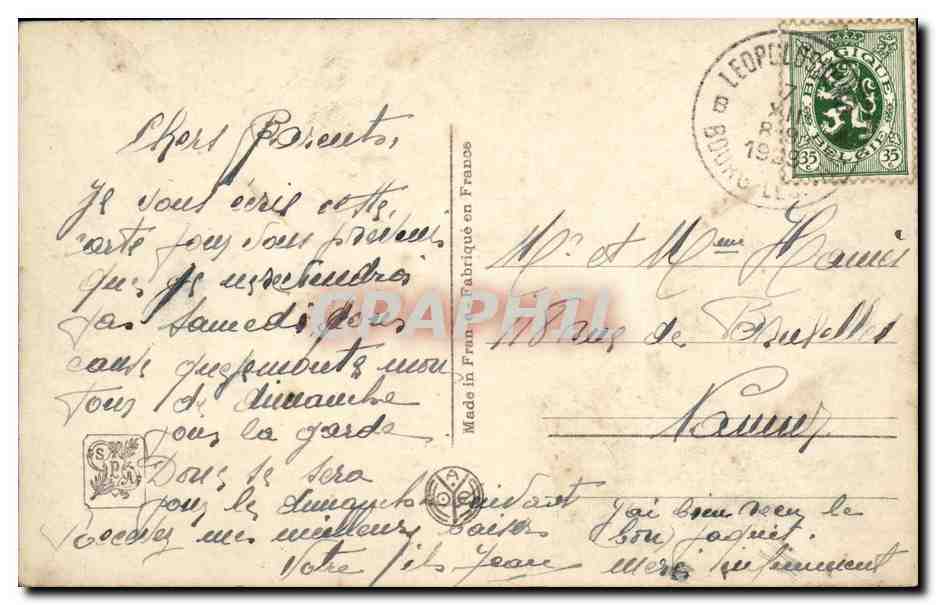 Chers Parents,
Je vous écris cette
carte pour vous prévenir
que je
pas samedi pour
cause que je monte mon
tour de dimanche
pour la garde
Donc se sera
pour le dimanche suivant
Recevez mes meilleurs baisers
Votre fils Jean
j'ai bien reçu le
bon paquet
merci infiniment
Made in France Fabriqué en France
Mr et Mme
118 rue de Bruxelles
Namur
LEOPOLDSBURG
7
XII
1929
8
BOURG LEOPOLD
BELGIQUE
BELGIE
35c 35c
CPAPHIL
S
P
A